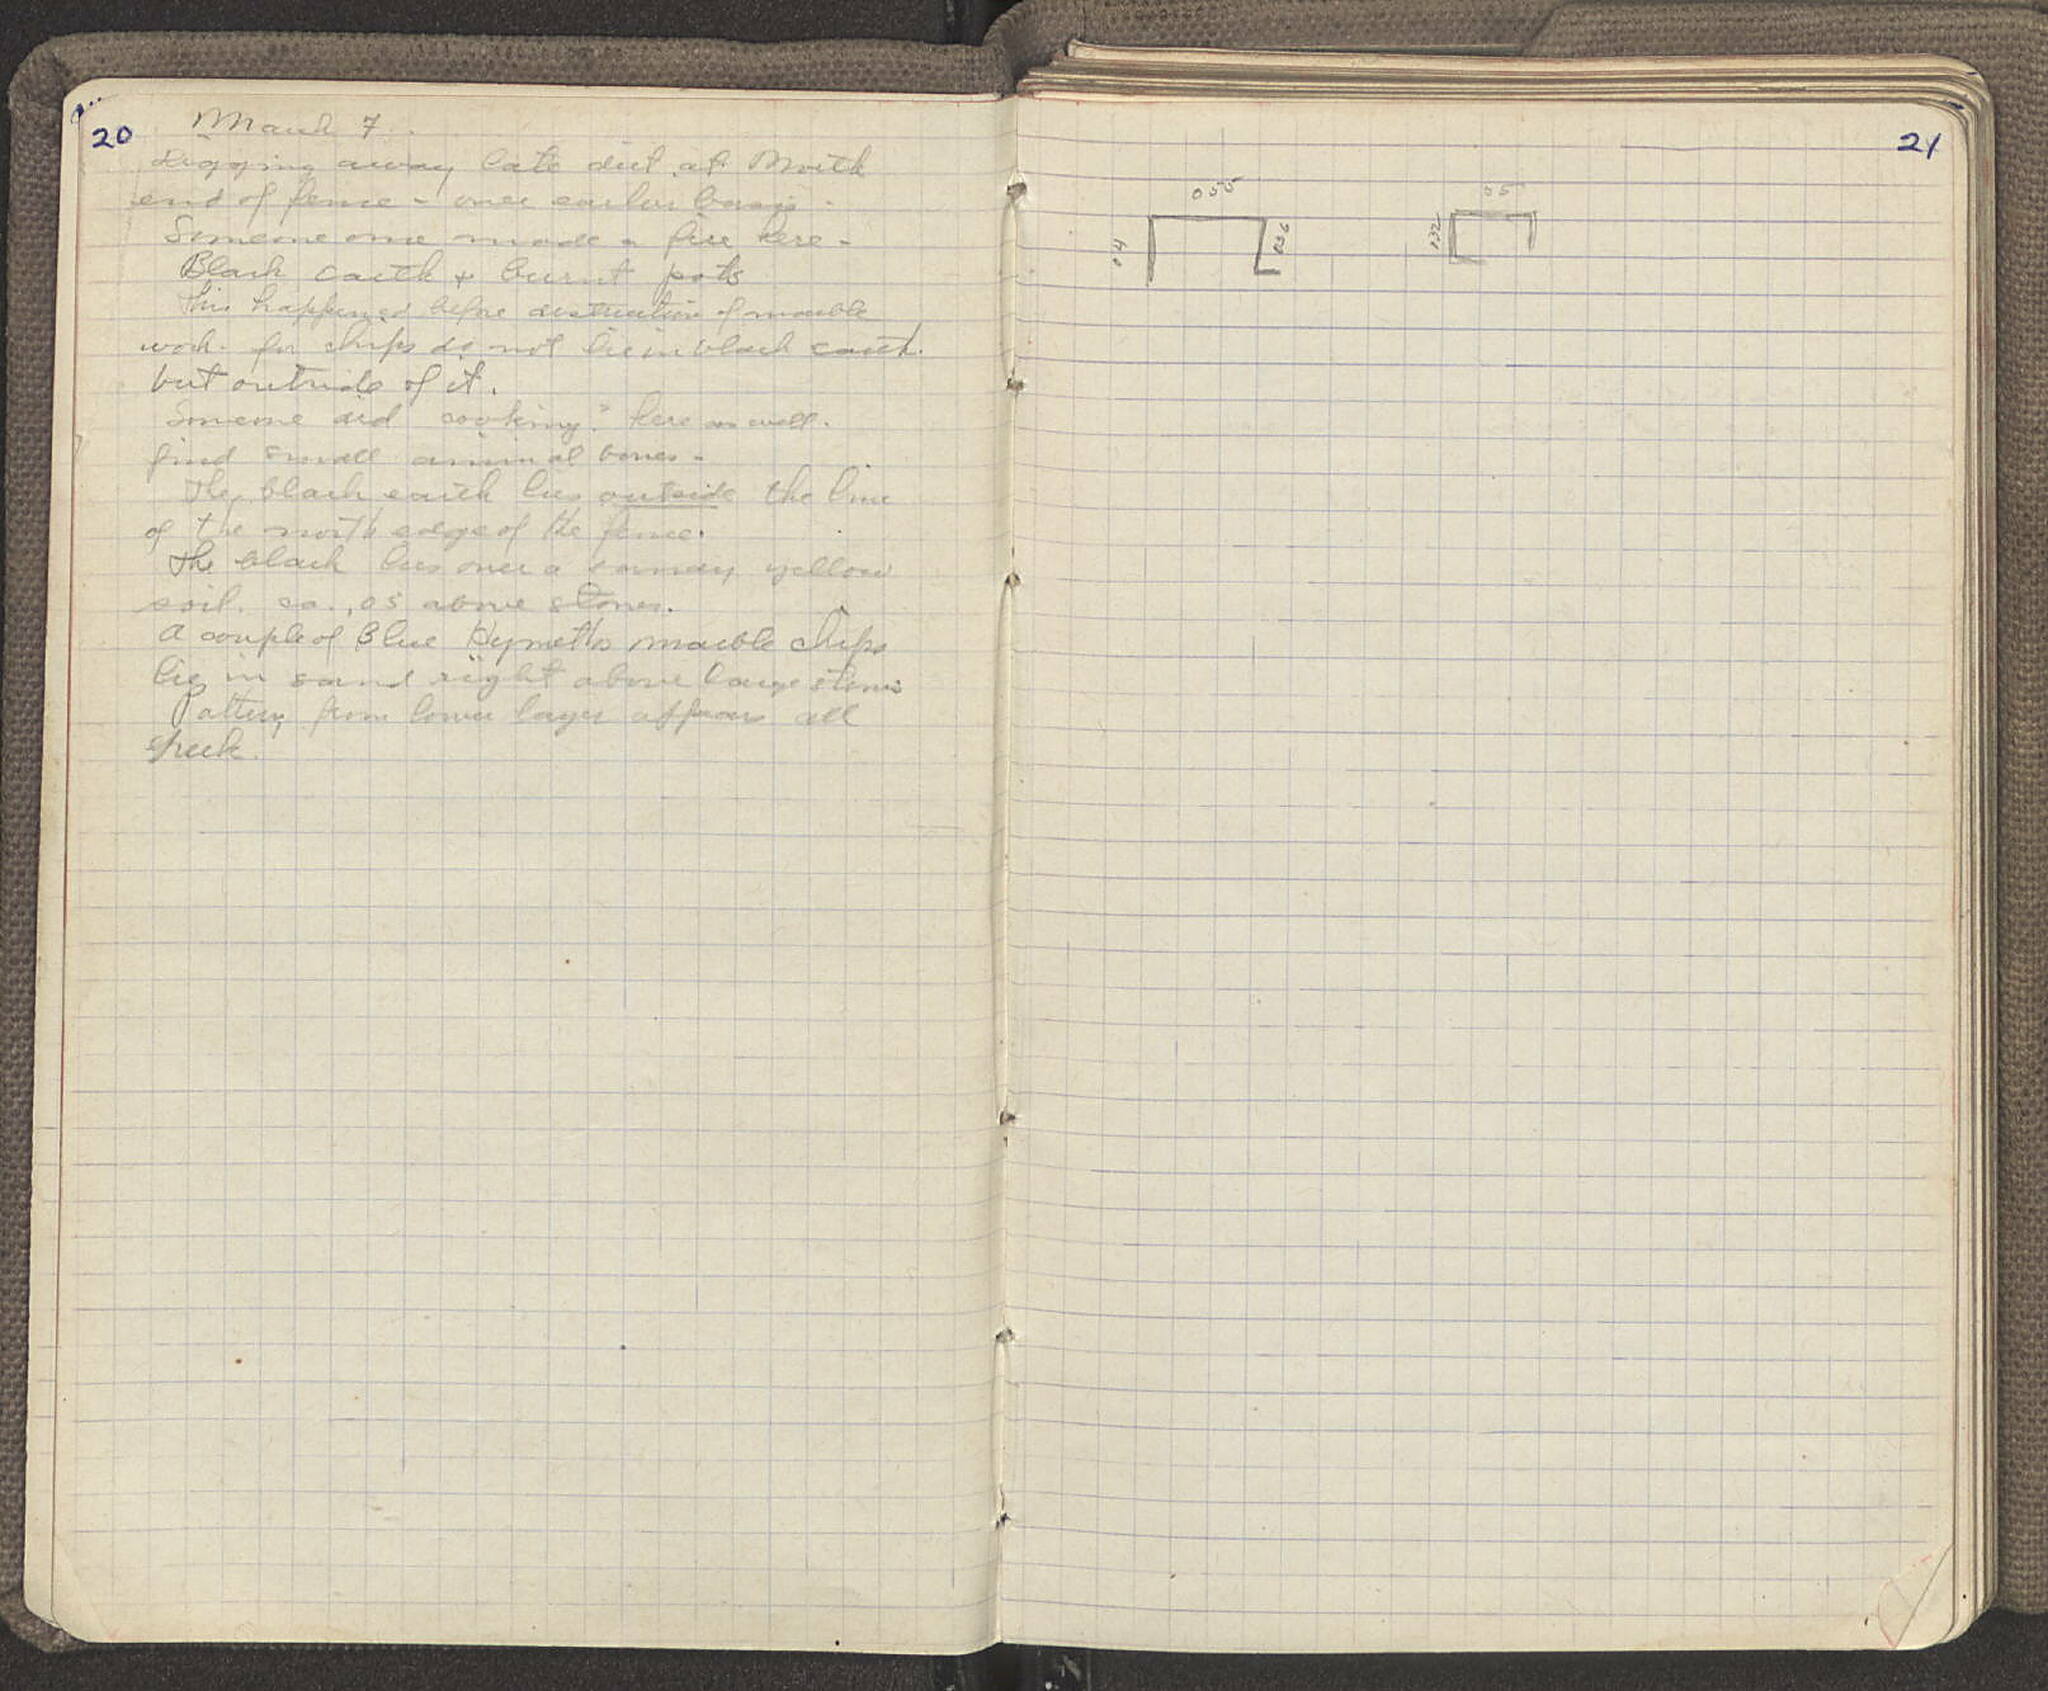 20
March 7.
Digging away late dirt at North
end of fence - over earlier basis -
Someone once made a fire here -
Black earth + burnt pots
This happened before destruction of marble
work - for chips do not lie in black earth.
but outside of it.
Someone did "cooking" here as well.
find small animal bones -
The black earth lies outside the line
of the north edge of the fence.
The black lies over a sandy yellow
soil. ca. ,05 above stones.
A couple of Blue Hymettos marble chips
lie in sand right above large stones
Pottery from lower layer appears all
Greek.
21
055
04
036
05
032